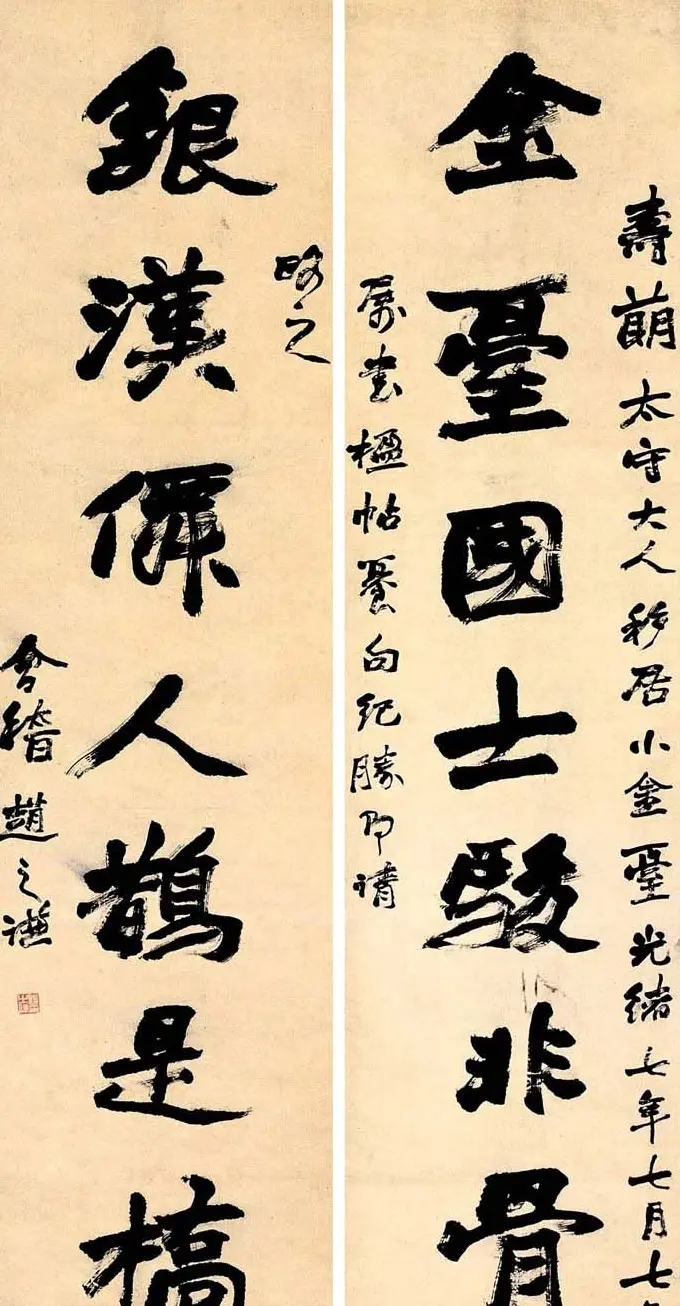 壽萠太守大人移居小金臺光緒七年七月七
金臺國士駿非骨
屬書楹帖句紀勝即請
之
銀漢僊人鵲是橋
會稽趙之謙